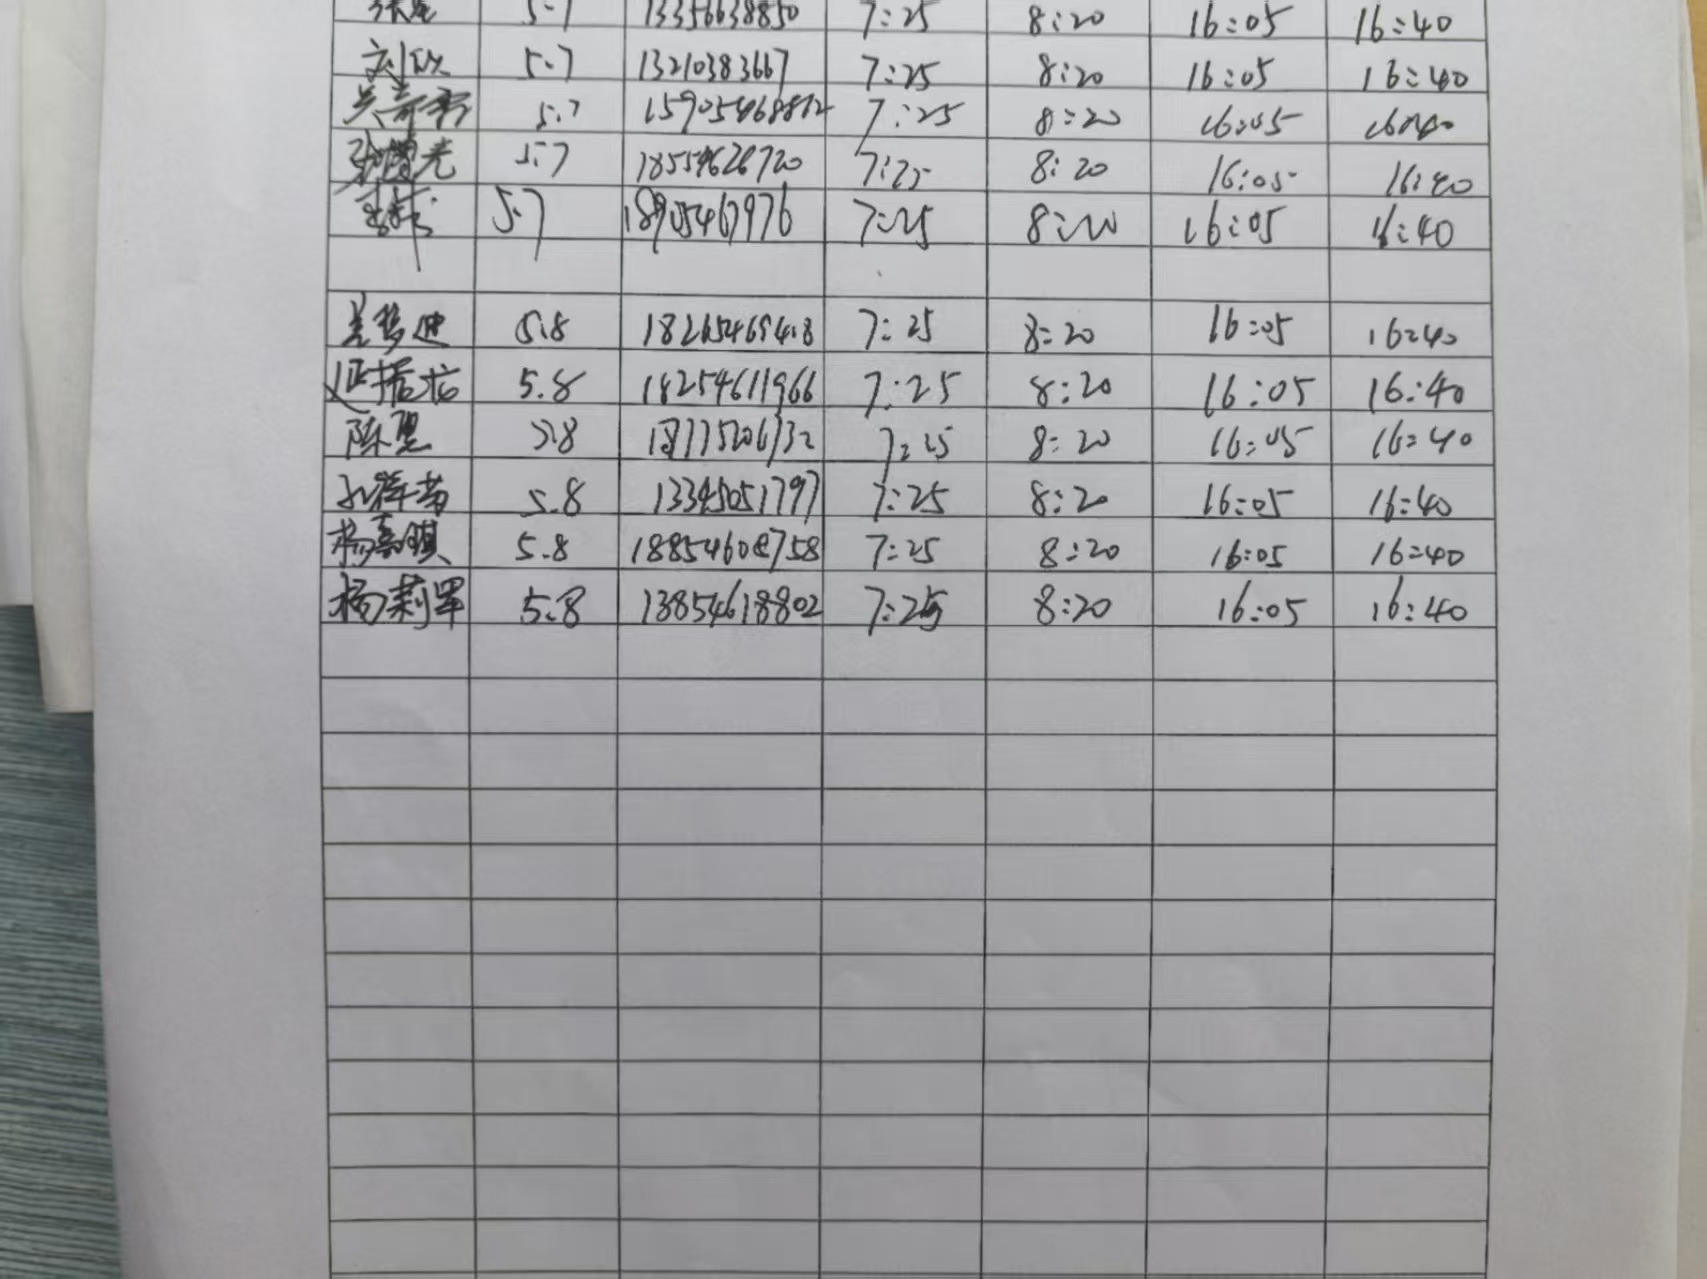 5.7 13356638850 7:25 8:20 16:05 16:40
刘欣 5.7 13210383667 7:25 8:20 16:05 16:40
5.7 7:25 8:20 16:05 16:40
5.7 18554628720 7:25 8:20 16:05 16:40
5.7 18905467976 7:25 8:20 16:05 16:40
5.8 7:25 8:20 16:05 16:40
5.8 18254611966 7:25 8:20 16:05 16:40
陈 5.8 7:25 8:20 16:05 16:40
5.8 13345051797 7:25 8:20 16:05 16:40
杨嘉琪 5.8 18854608758 7:25 8:20 16:05 16:40
杨莉军 5.8 13854618802 7:25 8:20 16:05 16:40